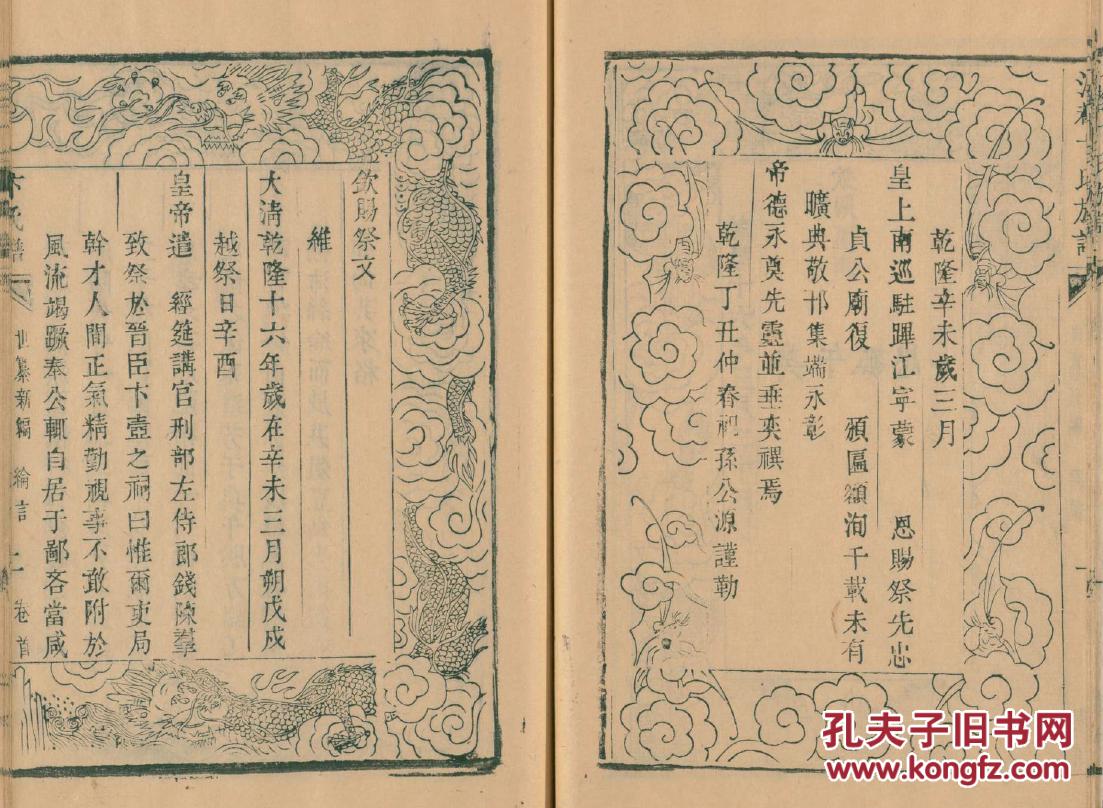 乾隆辛未歲三月
皇上南巡駐蹕江寧蒙 恩賜祭先忠
貞公廟復 頒匾額洵千載未有
曠典敬刊集端永彰
帝德永奠先靈並垂奕禩焉
乾隆丁丑仲春祀孫公源謹勒
欽賜祭文
維
大清乾隆十六年歲在辛未三月朔戊戌
越祭日辛酉
皇帝遣 經筵講官刑部左侍郎錢陳羣
致祭於晉臣卞壼之祠曰惟爾吏局
幹才人間正氣精勤視事不敢附於
風流竭蹶奉公輒自居于鄙吝當咸
卞氏譜 世纂新編 綸言 二 卷首
孔夫子旧书网
www.kongfz.com